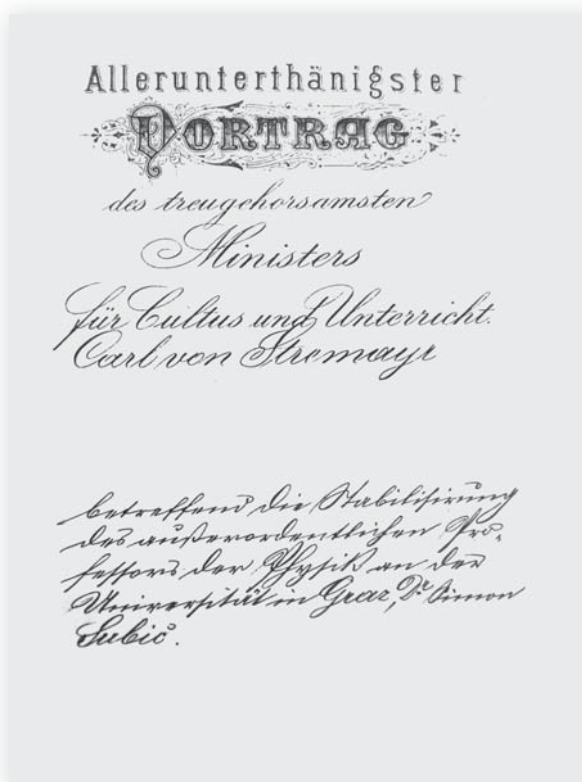 Allerunterthänigster
VORTRAG
des treugehorsamsten
Ministers
für Cultus und Unterricht.
Carl von Stremayr
betreffend die Stabilisirung
des außerordentlichen Pro-
fessors der Physik an der
Universität in Graz, Dr. Simon
Subić.